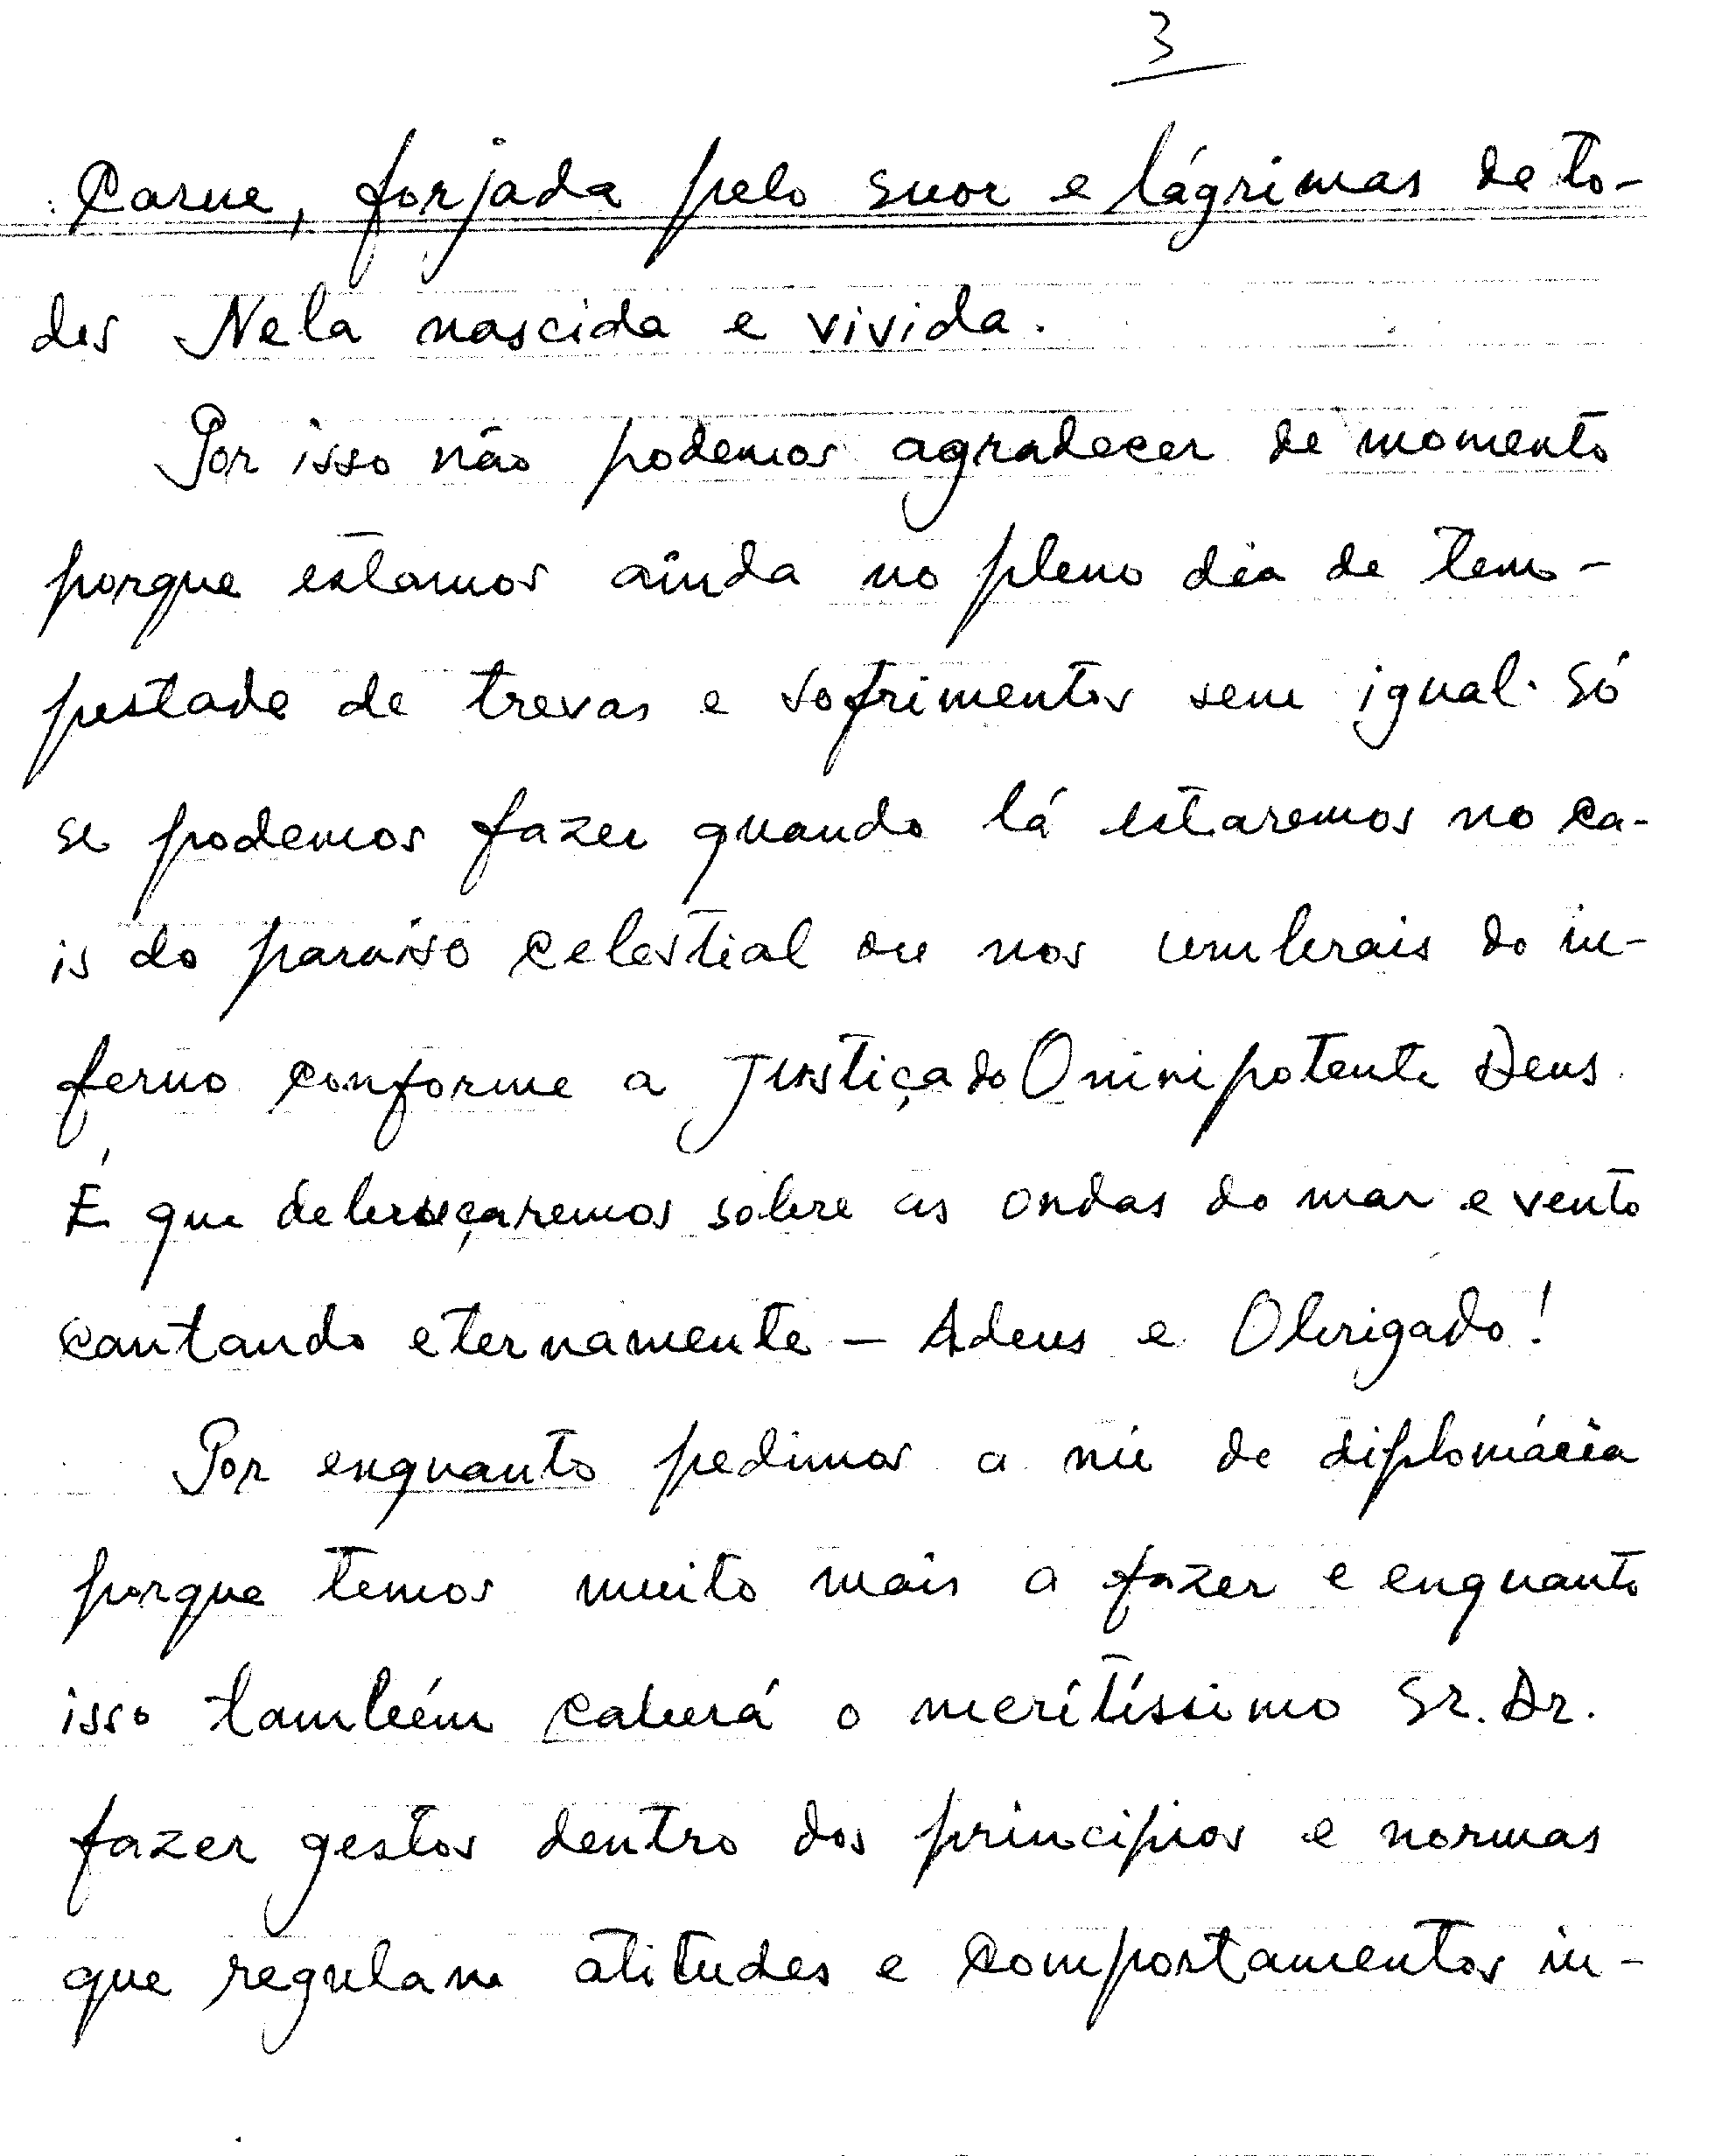 3
Carne, forjada pelo suor e lágrimas de to-
dos Nela nascida e vivida.
Por isso não podemos agradecer de momento
porque estamos ainda no pleno dia de tem-
pestade de trevas e sofrimentos sem igual. Só
se podemos fazer quando lá estaremos no ca-
is do paraiso celestial ou nos umbrais do in-
ferno conforme a Justiça do Omnipotente Deus.
É que debruçaremos sobre as ondas do mar e vento
cantando eternamente - Adeus e Obrigado!
Por enquanto pedimos a de diplomácia
porque temos muito mais a fazer e enquanto
isso também caberá o merítíssimo Sr. Dr.
fazer gestos dentro dos principios e normas
que regulam atitudes e comportamentos in-